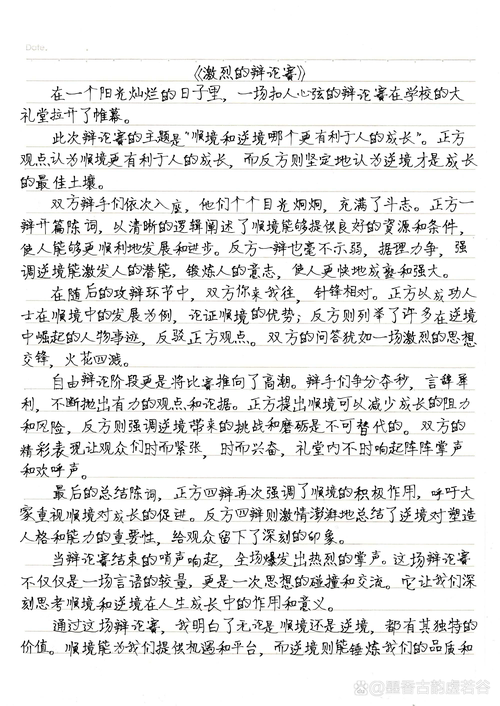 Date.
《激烈的辩论赛》
在一个阳光灿烂的日子里，一场扣人心弦的辩论赛在学校的大
礼堂拉开了帷幕。
此次辩论赛的主题是“顺境和逆境哪个更有利于人的成长”。正方
观点认为顺境更有利于人的成长，而反方则坚定地认为逆境才是成长
的最佳土壤。
双方辩手们依次入座，他们个个目光炯炯，充满了斗志。正方一
辩开篇陈词，以清晰的逻辑阐述了顺境能够提供良好的资源和条件，
使人能够更顺利地发展和进步。反方一辩也毫不示弱，据理力争，强
调逆境能激发人的潜能，锻炼人的意志，使人更快地成熟和强大。
在随后的攻辩环节中，双方你来我往，针锋相对。正方以成功人
士在顺境中的发展为例，论证顺境的优势；反方则列举了许多在逆境
中崛起的人物事迹，反驳正方观点。双方的问答犹如一场激烈的思想
交锋，火花四溅。
自由辩论阶段更是将比赛推向了高潮。辩手们争分夺秒，言辞犀
利，不断抛出有力的观点和论据。正方提出顺境可以减少成长的阻力
和风险，反方则强调逆境带来的挑战和磨砺是不可替代的。双方的
精彩表现让观众们时而紧张，时而兴奋，礼堂内不时响起阵阵掌声
和欢呼声。
最后的总结陈词，正方四辩再次强调了顺境的积极作用，呼吁大
家重视顺境对成长的促进。反方四辩则激情澎湃地总结了逆境对塑造
人格和能力的重要性，给观众留下了深刻的印象。
当辩论赛结束的哨声响起，全场爆发出热烈的掌声。这场辩论赛
不仅仅是一场言语的较量，更是一次思想的碰撞和交流。它让我们深
刻思考顺境和逆境在人生成长中的作用和意义。
通过这场辩论赛，我明白了无论是顺境还是逆境，都有其独特的
价值。顺境能为我们提供机遇和平台，而逆境则能锤炼我们的品质和